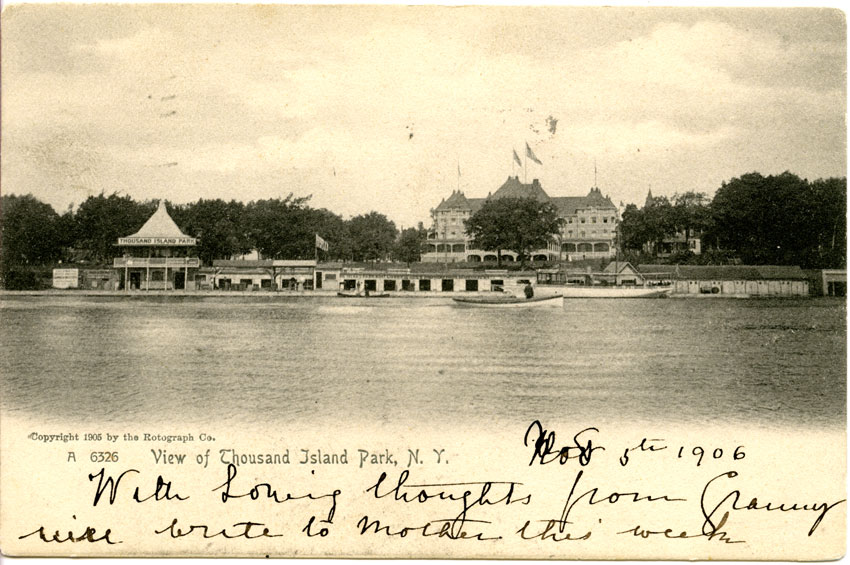 THOUSAND ISLAND PARK
Copyright 1905 by the Rotograph Co.
A 6326 View of Thousand Island Park, N. Y.
Nov 5th 1906
With Loving thoughts from Granny
will write to Mother this week